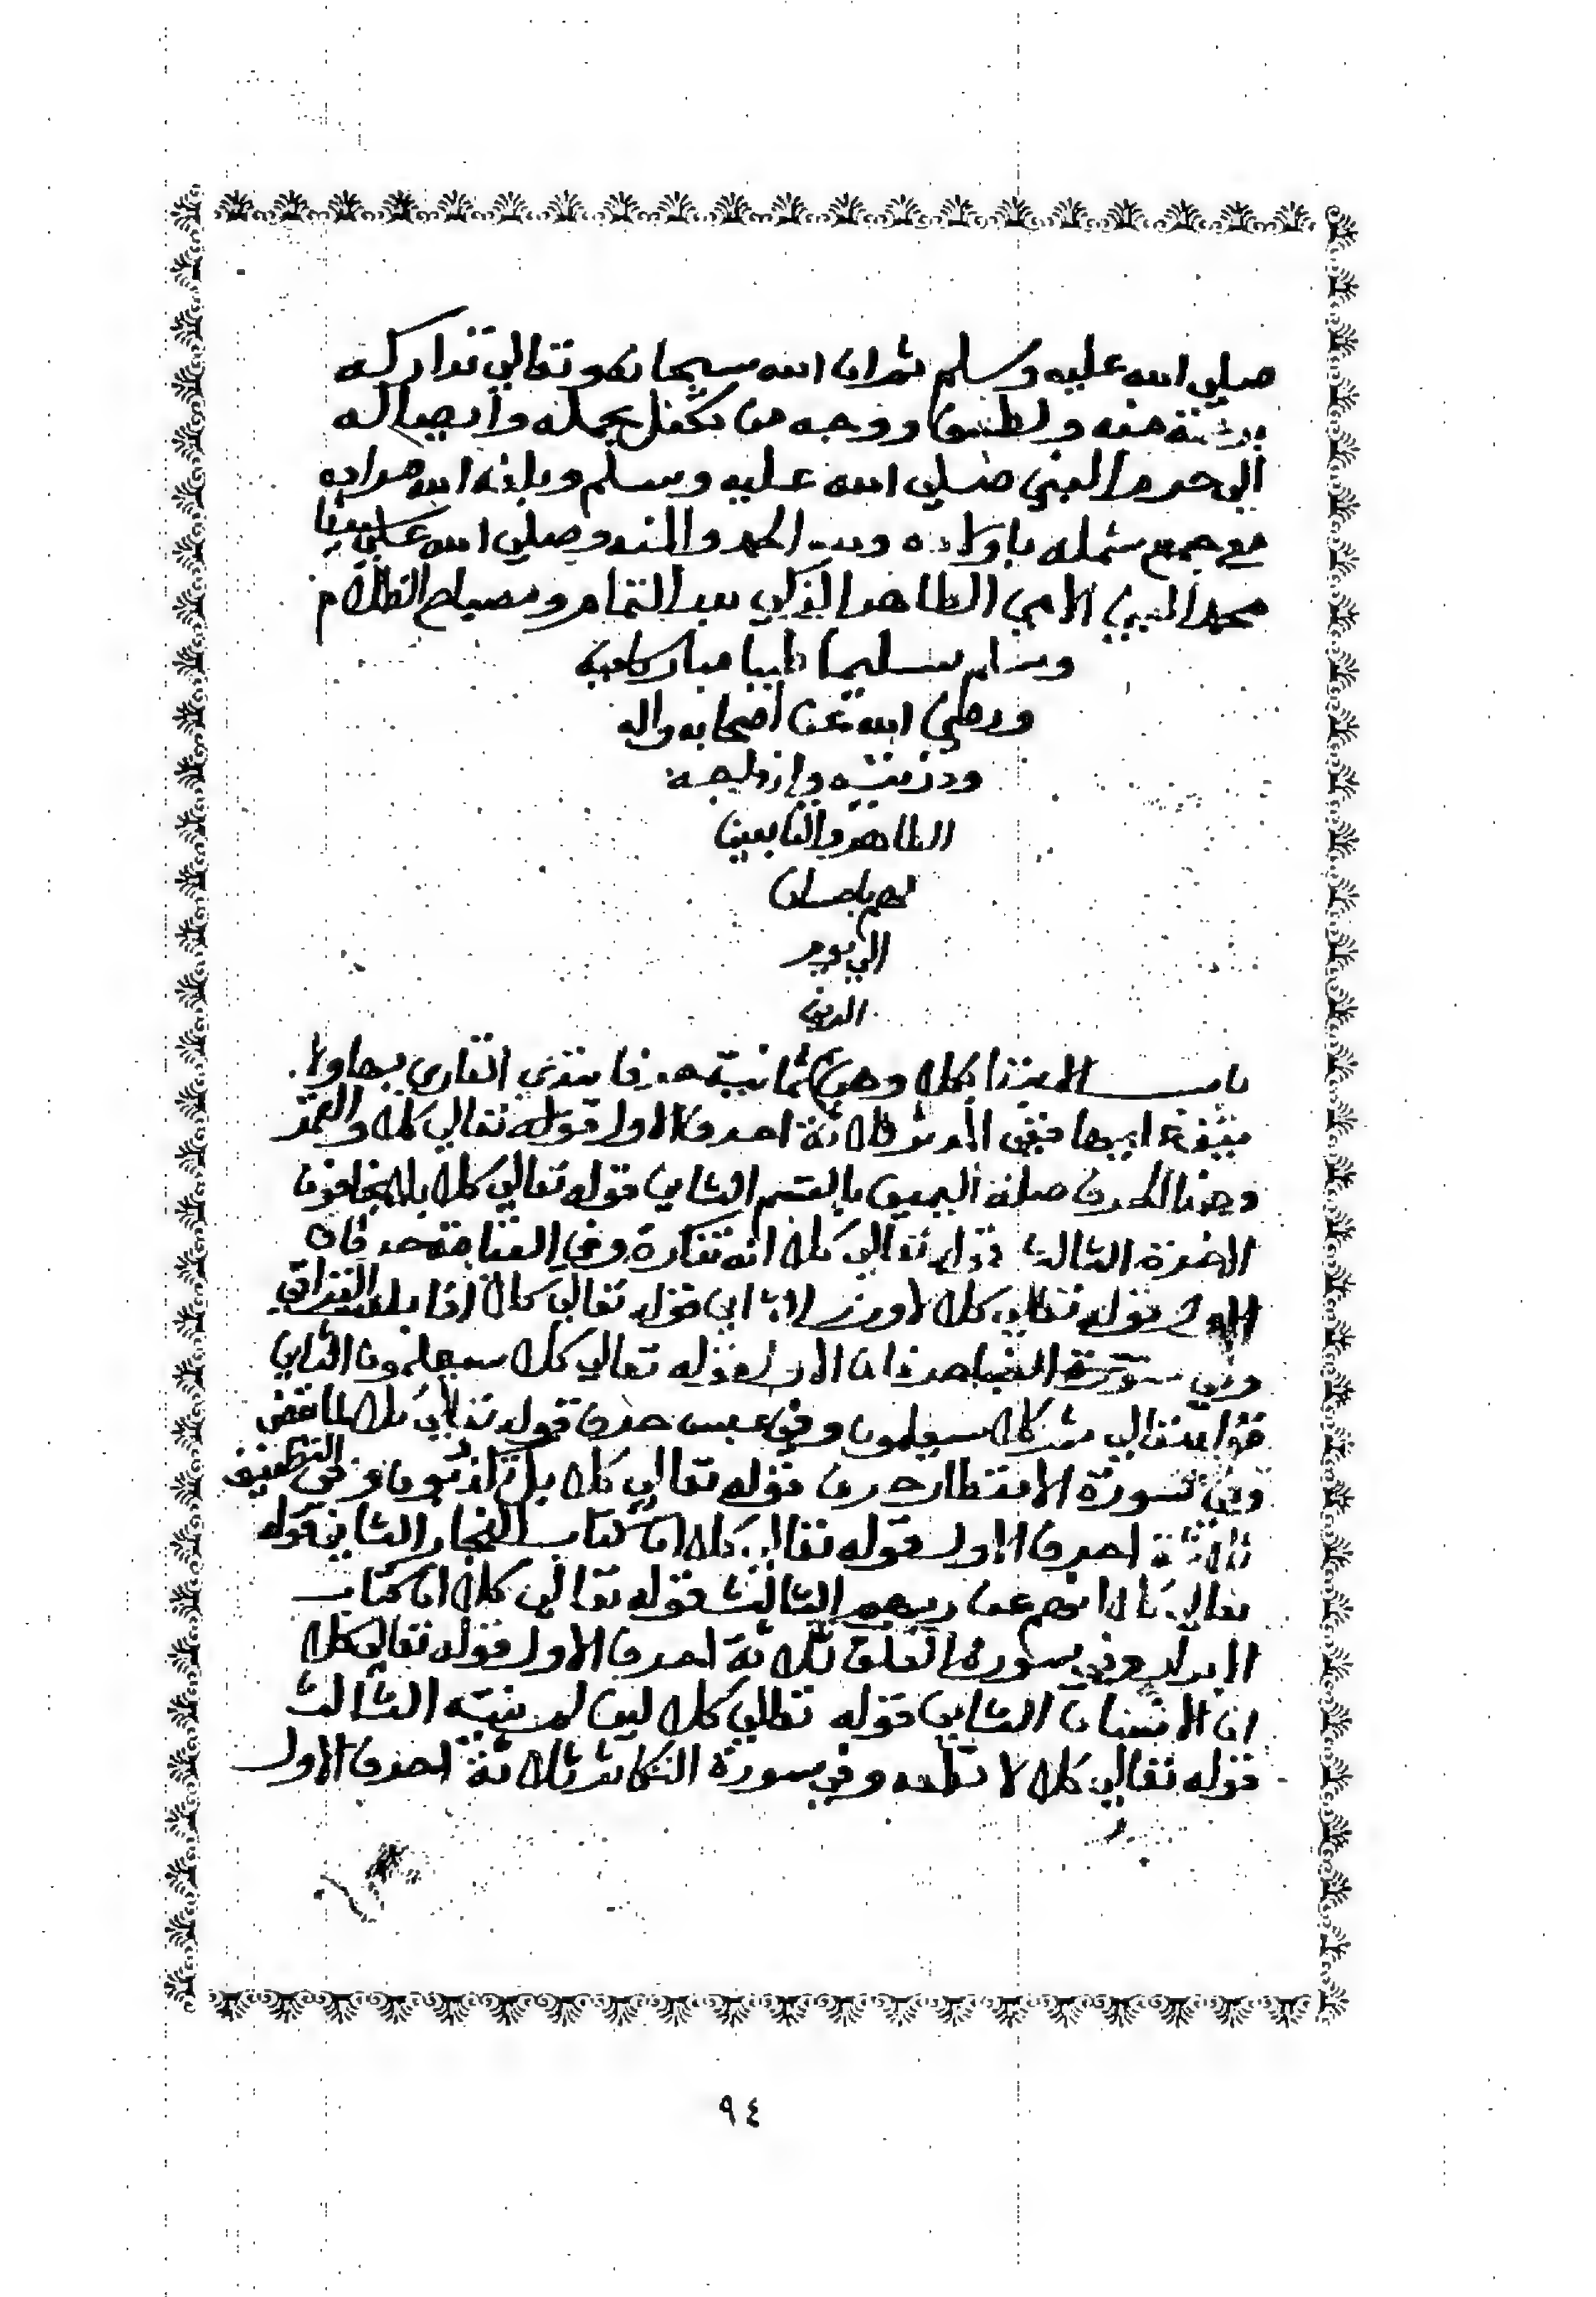 صلي الله عليه وسلم ثم ان الله سبحانه وتعالي تداركه
منه ولطف ووجه من تكفل بحمله وايصاله
الي حرم النبي صلي الله عليه وسلم وبلغه الله مراده
مع جمع شمله باولاده ولله الحمد والمنه وصلي الله علي سيدنا
محمد النبي الامي الطاهر الزكي بدر التمام ومصباح الظلام
وسلم تسليما طيبا مباركا فيه
ورضي الله عن اصحابه واله
وذريته وازواجه
الطاهرة والتابعين
لهم باحسان
الي يوم
الدين
باب الابتدا بكلا وهي ثمانية عشر حرفا يبتدي القاري بها ولا
يقف عليها ففي المدثر ثلاثة احرف الاول قوله تعالي كلا والقمر
وهذا الحرف صلة اليمين بالقسم الثاني قوله تعالي كلا بل لا يخافون
الاخرة الثالث قوله تعالي كلا انه تذكرة وفي القيامة حرفان
الاول قوله تعالي كلا لا وزر الثاني قوله تعالي كلا اذا بلغت التراقي
وفي سورة النبا حرفان الاول قوله تعالي كلا سيعلمون الثاني
قوله تعالي ثم كلا سيعلمون وفي عبس حرف قوله تعالي كلا لما يقض
وفي سورة الانفطار حرف قوله تعالي كلا بل تكذبون وفي التطفيف
ثلاثة احرف الاول قوله تعالي كلا ان كتاب الفجار الثاني قوله
تعالي كلا انهم عن ربهم الثالث قوله تعالي كلا ان كتاب
الابرار وفي سورة العلق ثلاثة احرف الاول قوله تعالي كلا
ان الانسان الثاني قوله تعالي كلا لين لم ينته الثالث
قوله تعالي كلا لا تطعه وفي سورة التكاثر ثلاثة احرف الاول
٩٤